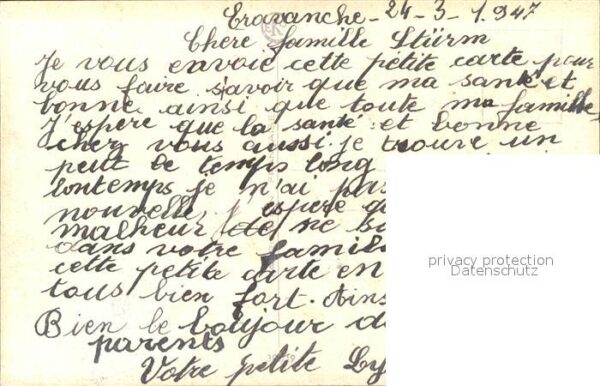 Eravanche - 24 - 3 - 1.947
Chere famille Stürm
Je vous envoie cette petite carte pour
vous faire savoir que ma santé et
bonne ainsi que toute ma famille,
J'espere que la santé et bonne
chez vous aussi. je trouve un
peut le temps long
lontemps je n'ai pas
nouvelle, j'espere
malheur de ne
dans votre famille
cette petite carte en
tous bien fort. Ains
Bien le boujour de
parents
Votre petite Ly
privacy protection
Datenschutz